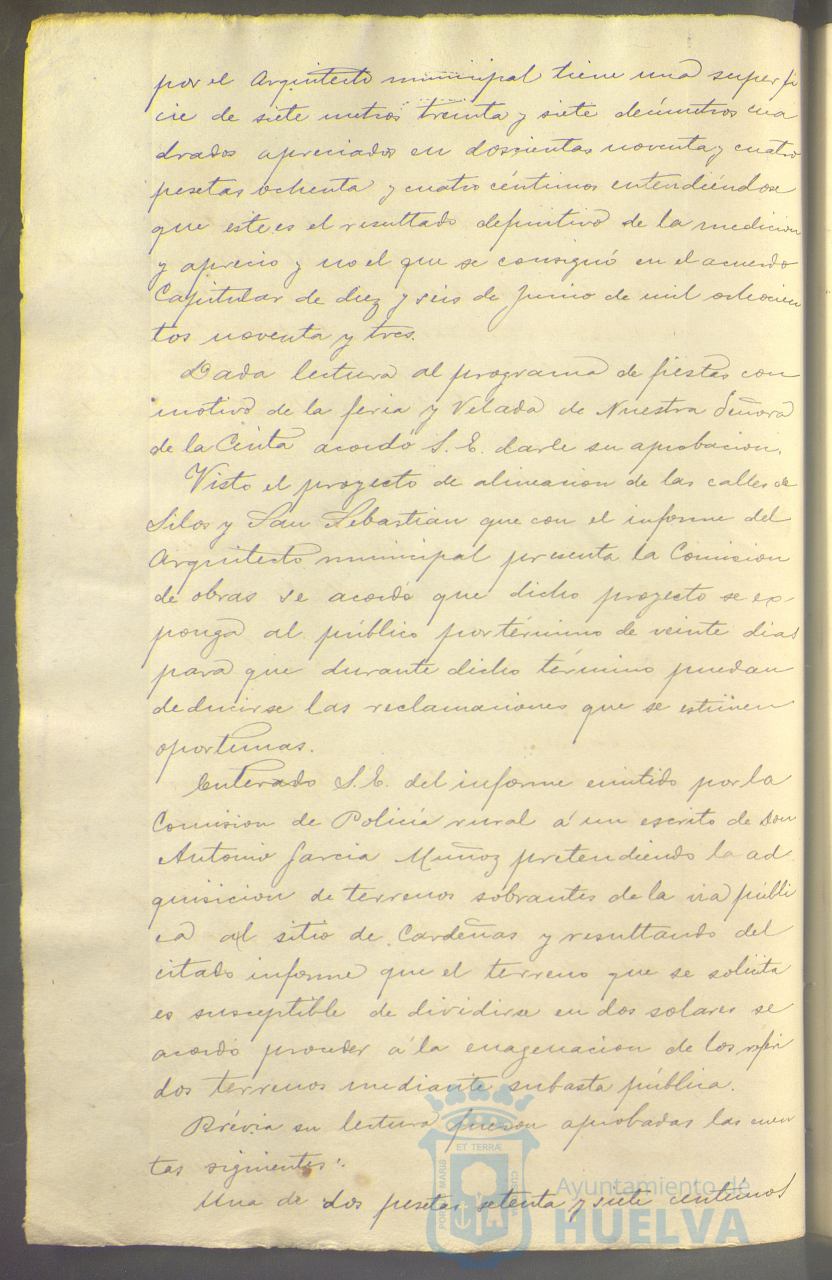 por el Arquitecto municipal tiene una superfi
cie de siete metros treinta y siete decímetros cua
drados apreciados en doscientas noventa y cuatro
pesetas ochenta y cuatro céntimos entendiéndose
que este es el resultado definitivo de la medicion
y aprecio y no el que se consignó en el acuerdo
Capitular de diez y seis de Junio de mil ochocien
tos noventa y tres.
Dada lectura al programa de fiestas con
motivo de la feria y Velada de Nuestra Señora
de la Cinta acordó S. E. darle su aprobacion.
Visto el proyecto de alineacion de las calles de
Silos y San Sebastian que con el informe del
Arquitecto municipal presenta la Comision
de obras se acordó que dicho proyecto se ex-
ponga al público por término de veinte dias
para que durante dicho término puedan
deducirse las reclamaciones que se estimen
oportunas.
Enterado S. E. del informe emitido por la
Comision de Policía rural á un escrito de Don
Antonio Garcia Muñoz pretendiendo la ad
quisicion de terrenos sobrantes de la via públi
ca al sitio de Cardeñas y resultando del
citado informe que el terreno que se solicita
es susceptible de dividirse en dos solares se
acordó proceder á la enagenacion de los referi
dos terrenos mediante subasta pública.
Prévia su lectura fueron aprobadas las cuen
tas siguientes:
Una de dos pesetas setenta y siete centimos
PORTUS MARIS ET TERRÆ CUSTODIA
Ayuntamiento de
HUELVA